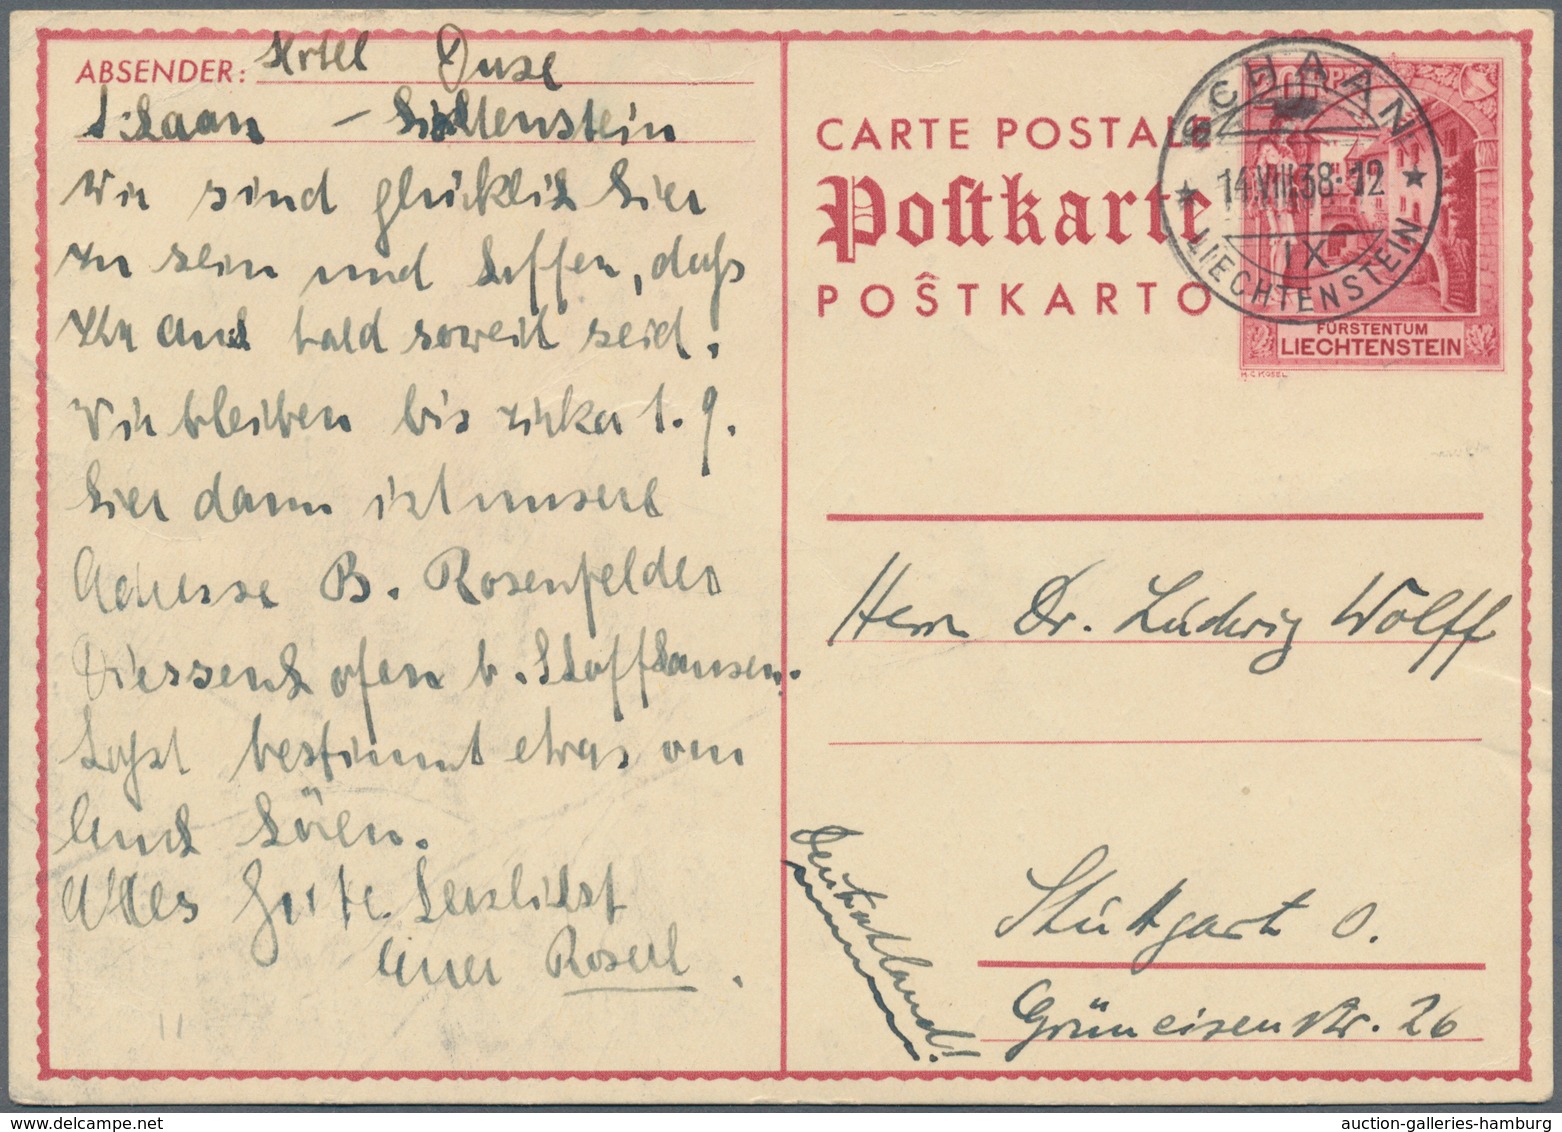 ABSENDER: Hotel Duxe
Schaan – Lichtenstein
Wir sind glücklich hier
zu sein und hoffen, daß
Ihr auch bald soweit seid.
Wir bleiben bis zirka 1. 9.
hier dann ist unsere
Adresse B. Rosenfelder
Diessenhofen b. Schaffhausen.
Laßt bestimmt etwas von
Euch hören.
Alles Gute. Herzlichst
Euer Roserl.
CARTE POSTALE
Postkarte
POŜTKARTO
SCHAAN
14.VIII.38-12
IX
LIECHTENSTEIN
FÜRSTENTUM
LIECHTENSTEIN
H.C. KOSEL
Herrn Dr. Ludwig Wolff
Stuttgart O.
Grüneisenstr. 26
Deutschland!
auction-galleries-hamburg.com